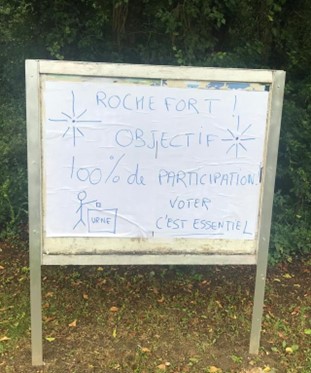 ROCHEFORT !
OBJECTIF
100% de PARTICIPATION.
VOTER
C'EST ESSENTIEL
URNE